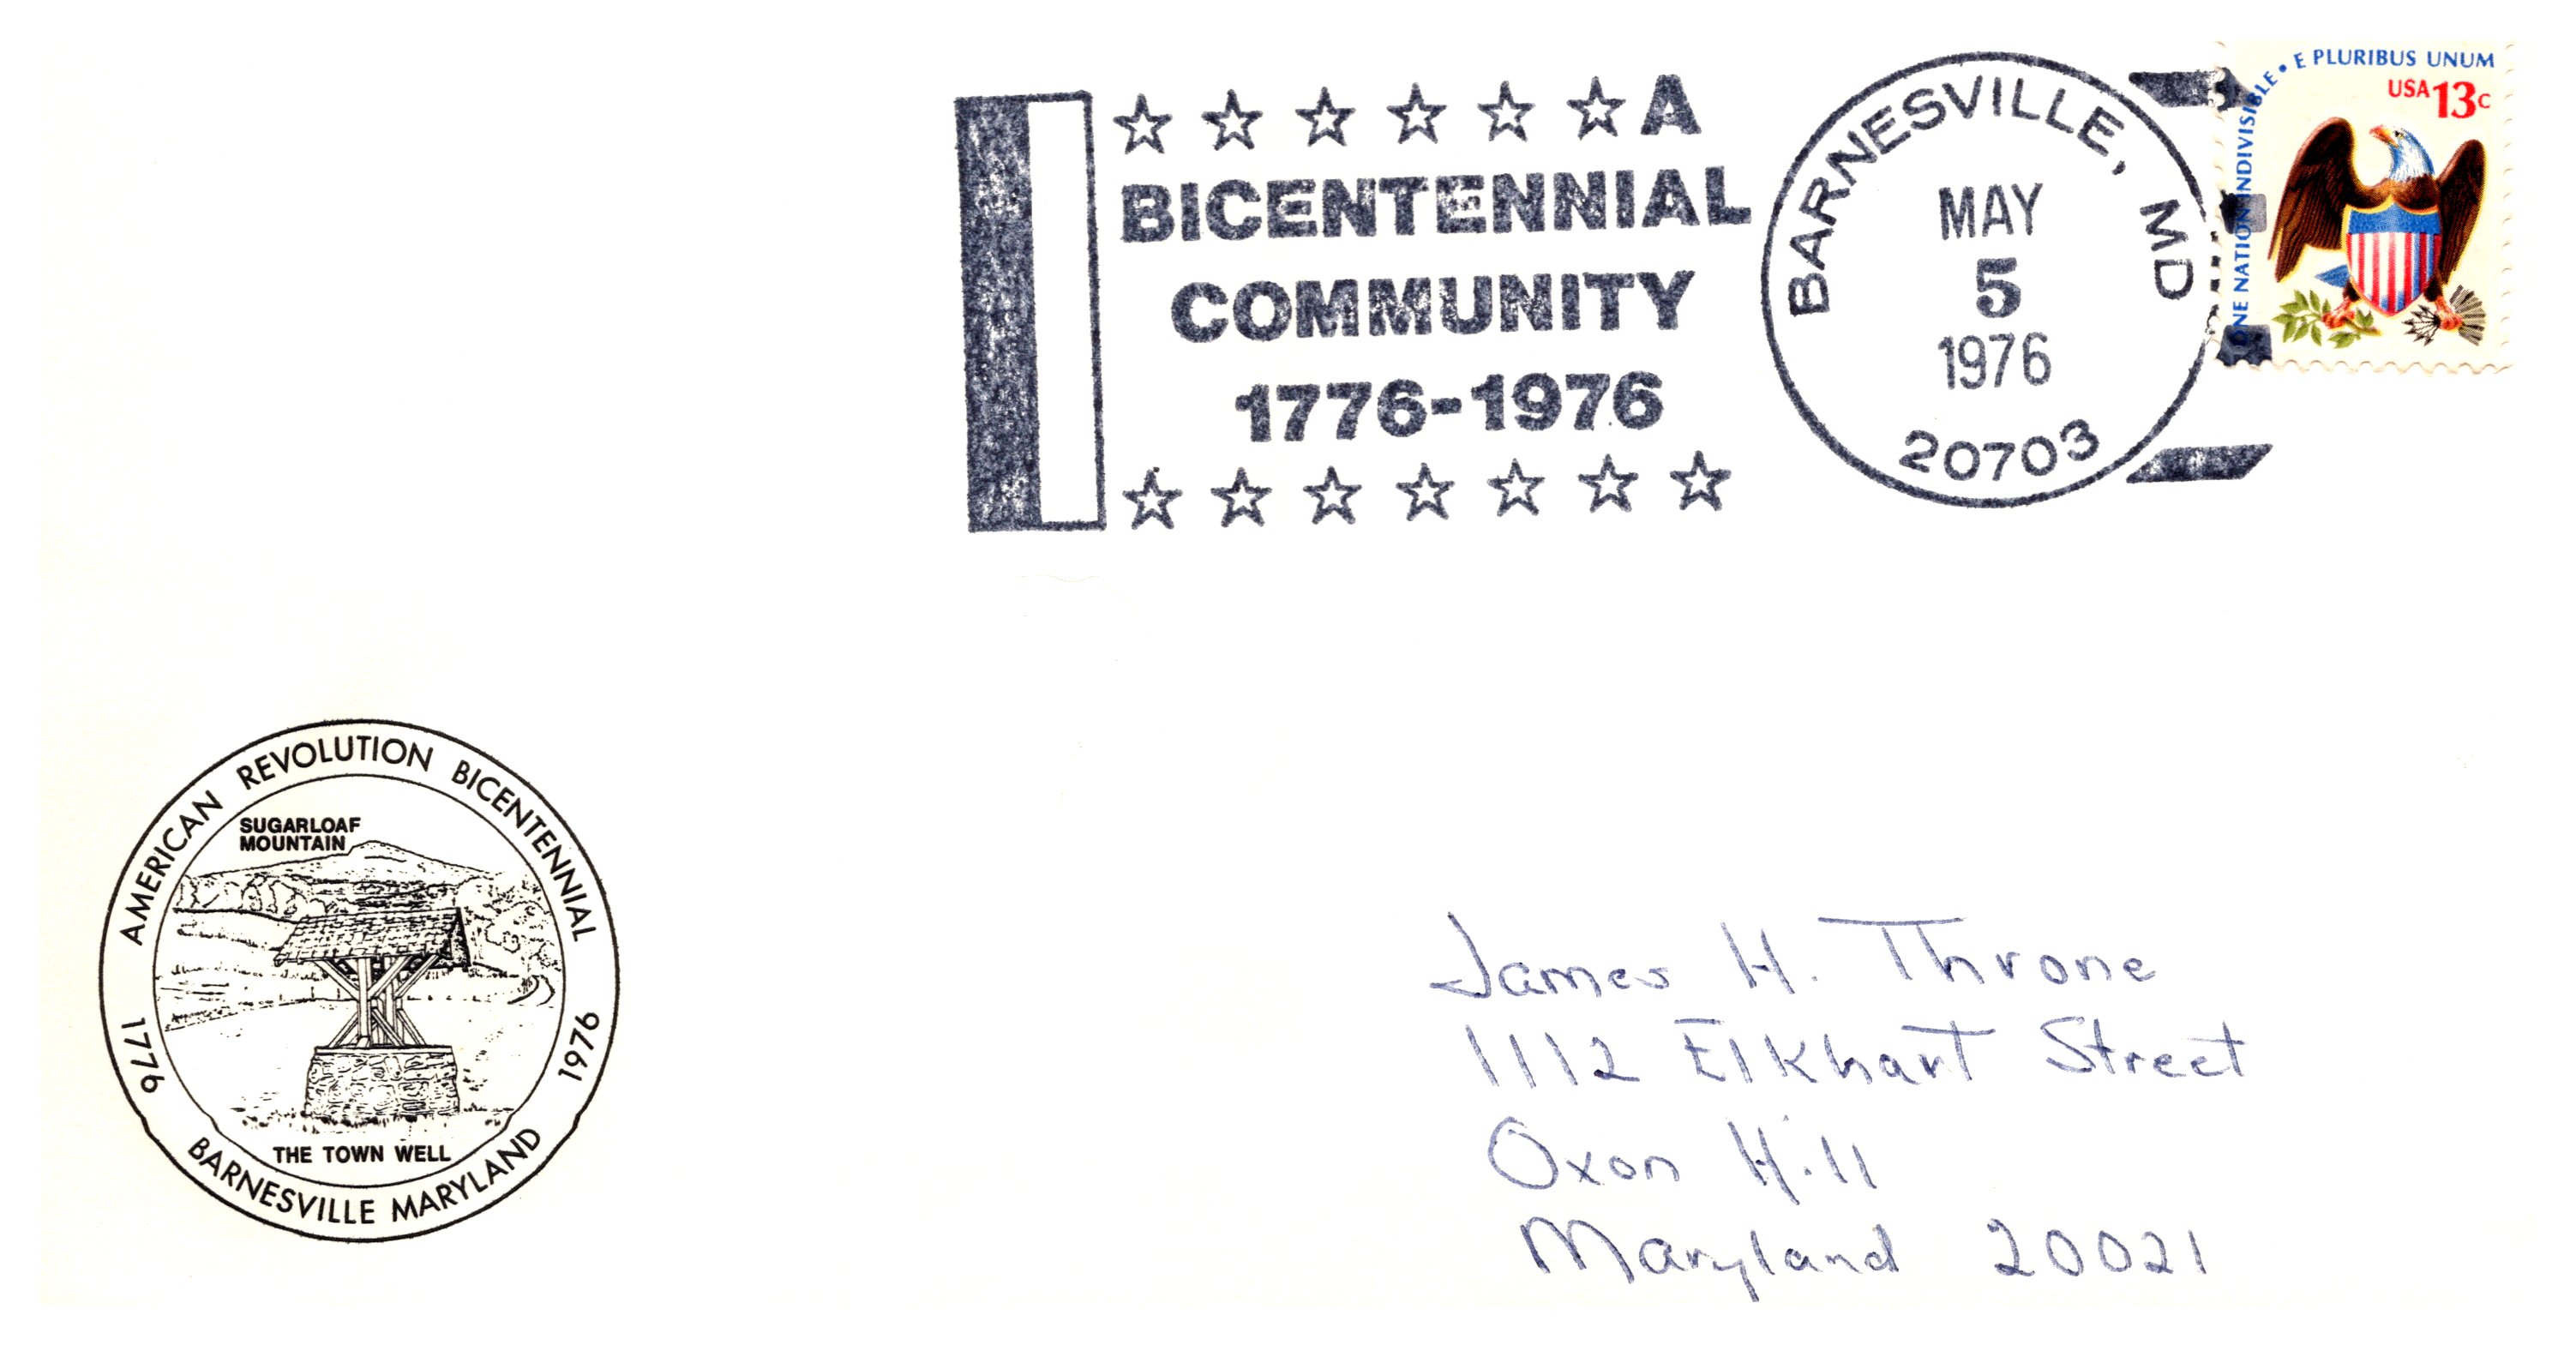 A
BICENTENNIAL
COMMUNITY
1776-1976
BARNESVILLE, MD
MAY
5
1976
20703
ONE NATION INDIVISIBLE • E PLURIBUS UNUM
USA 13c
AMERICAN REVOLUTION BICENTENNIAL
1776
1976
SUGARLOAF
MOUNTAIN
THE TOWN WELL
BARNESVILLE MARYLAND
James H. Throne
1112 Elkhart Street
Oxon Hill
Maryland 20021